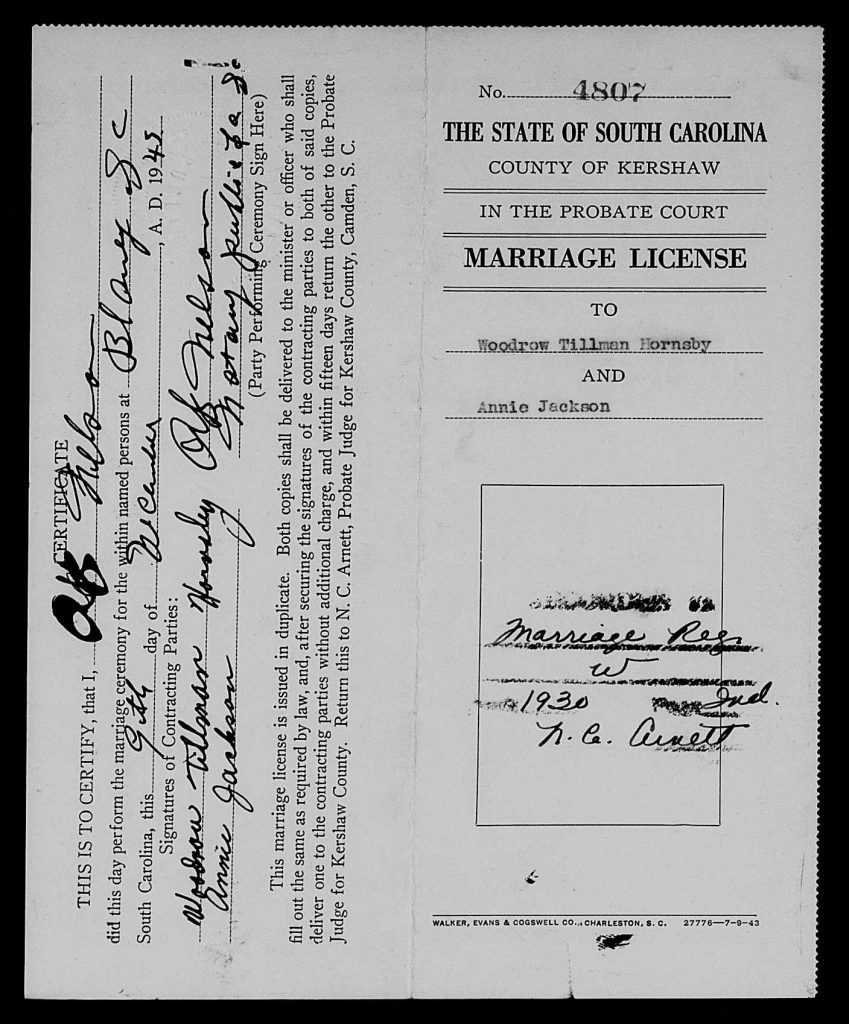 CERTIFICATE
THIS IS TO CERTIFY, that I, Nelson
did this day perform the marriage ceremony for the within named persons at Blaney S C
South Carolina, this 9th day of December, A. D. 1945
Signatures of Contracting Parties:
Woodrow Tillman Hornsby
Annie Jackson
Nelson
Notary Public for S C
(Party Performing Ceremony Sign Here)
This marriage license is issued in duplicate. Both copies shall be delivered to the minister or officer who shall
fill out the same as required by law, and, after securing the signatures of the contracting parties to both of said copies,
deliver one to the contracting parties without additional charge, and within fifteen days return the other to the Probate
Judge for Kershaw County. Return this to N. C. Arnett, Probate Judge for Kershaw County, Camden, S. C.
No. 4807
THE STATE OF SOUTH CAROLINA
COUNTY OF KERSHAW
IN THE PROBATE COURT
MARRIAGE LICENSE
TO
Woodrow Tillman Hornsby
AND
Annie Jackson
Marriage Reg
W
1930 Ind.
N. C. Arnett
WALKER, EVANS & COGSWELL CO., CHARLESTON, S. C. 27776—7-9-43